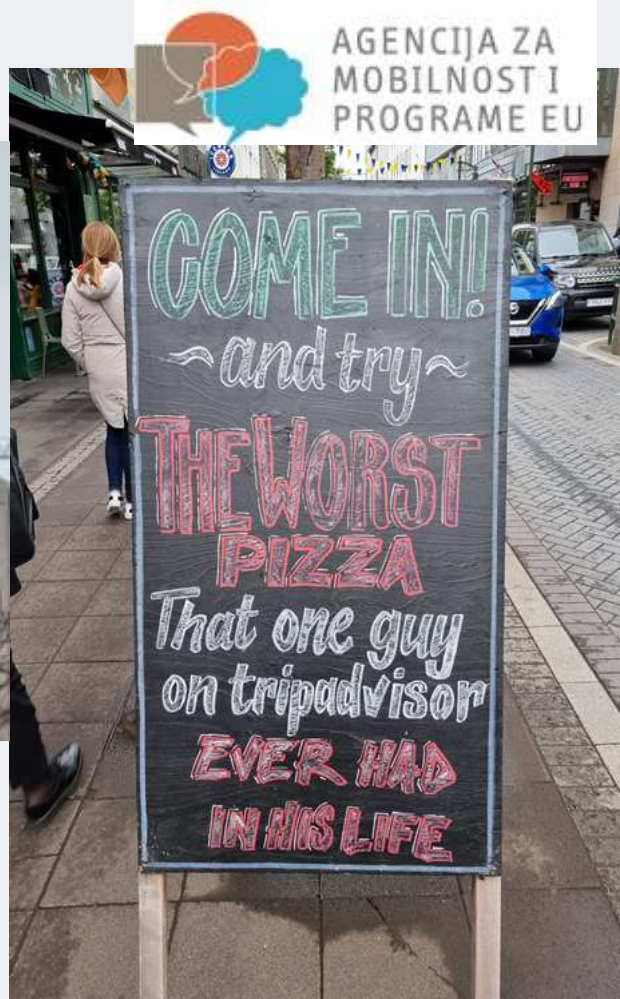 AGENCIJA ZA
MOBILNOST I
PROGRAME EU
COME IN!
~and try~
THE WORST
PIZZA
That one guy
on tripadvisor
EVER HAD
IN HIS LIFE